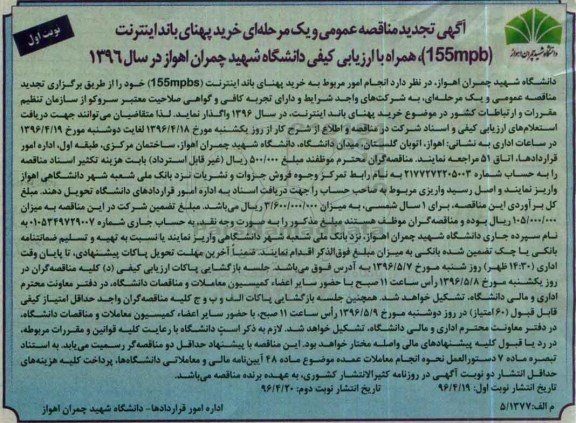 دانشگاه شهید چمران اهواز
نوبت اول
آگهی تجدید مناقصه عمومی و یک مرحله‌ای خرید پهنای باند اینترنت
(155mpb)، همراه با ارزیابی کیفی دانشگاه شهید چمران اهواز در سال ۱۳۹۶
دانشگاه شهید چمران اهواز، در نظر دارد انجام امور مربوط به خرید پهنای باند اینترنت (155mpbs) خود را از طریق برگزاری تجدید
مناقصه عمومی و یک مرحله‌ای، به شرکت‌های واجد شرایط و دارای تجربه کافی و گواهی صلاحیت معتبر سروکو از سازمان تنظیم
مقررات و ارتباطات کشور در موضوع خرید پهنای باند اینترنت، در سال ۱۳۹۶ واگذار نماید. لذا متقاضیان می‌توانند جهت دریافت
استعلام‌های ارزیابی کیفی و اسناد شرکت در مناقصه و اطلاع از شرح کار از روز یکشنبه مورخ ۱۳۹۶/۴/۱۸ لغایت دوشنبه مورخ ۱۳۹۶/۴/۱۹
در ساعات اداری به نشانی: اهواز، اتوبان گلستان، میدان دانشگاه، دانشگاه شهید چمران اهواز، ساختمان مرکزی، طبقه اول، اداره امور
قراردادها، اتاق ۵۱ مراجعه نمایند. مناقصه‌گران محترم موظفند مبلغ ۵۰۰/۰۰۰ ریال (غیر قابل استرداد) بابت هزینه تکثیر اسناد مناقصه
را به حساب شماره ۲۱۷۷۲۷۲۲۰۵۰۰۳ به نام رابط تمرکز وجوه فروش جزوات و نشریات نزد بانک ملی شعبه شهر دانشگاهی اهواز
واریز نمایند و اصل رسید واریزی مربوط به صاحب حساب را جهت دریافت اسناد به اداره امور قراردادهای دانشگاه تحویل دهند. مبلغ
کل برآوردی این مناقصه، برای ۱ سال شمسی، به میزان ۳/۶۰۰/۰۰۰/۰۰۰ ریال می‌باشد. مبلغ تضمین شرکت در این مناقصه به میزان
۱۰۵/۰۰۰/۰۰۰ ریال بوده و مناقصه‌گران موظف هستند مبلغ مذکور را به صورت وجه نقد، به حساب جاری شماره ۰۱۰۵۳۴۹۷۲۹۰۰۷ به
نام سپرده جاری دانشگاه شهید چمران اهواز، نزد بانک ملی شعبه شهر دانشگاهی واریز نمایند یا نسبت به تهیه و تسلیم ضمانتنامه
بانکی یا چک تضمین شده بانکی به میزان مبلغ فوق‌الذکر اقدام نمایند. ضمناً آخرین مهلت تحویل پاکات پیشنهادی، تا پایان وقت
اداری (۱۴:۳۰ ظهر) روز شنبه مورخ ۱۳۹۶/۵/۷ به آدرس فوق می‌باشد. جلسه بازگشایی پاکات ارزیابی کیفی (د) کلیه مناقصه‌گران در
روز یکشنبه مورخ ۱۳۹۶/۵/۸ رأس ساعت ۱۱ صبح با حضور سایر اعضاء کمیسیون معاملات و مناقصات دانشگاه، در دفتر معاونت محترم
اداری و مالی دانشگاه، تشکیل خواهد شد. همچنین جلسه بازگشایی پاکات الف و ب و ج کلیه مناقصه‌گران واجد حداقل امتیاز کیفی
قابل قبول (۶۰ امتیاز) در روز دوشنبه مورخ ۱۳۹۶/۵/۹ رأس ساعت ۱۱ صبح، با حضور سایر اعضاء کمیسیون معاملات و مناقصات دانشگاه،
در دفتر معاونت محترم اداری و مالی دانشگاه، تشکیل خواهد شد. لازم به ذکر است دانشگاه با رعایت کلیه قوانین و مقررات مربوطه،
در رد یا قبول کلیه پیشنهادهای مالی واصله مختار خواهد بود. این مناقصه با پیشنهاد حداقل دو مناقصه‌گر رسمیت می‌یابد. به استناد
تبصره ماده ۷ دستورالعمل نحوه انجام معاملات عمده موضوع ماده ۴۸ آیین‌نامه مالی و معاملاتی دانشگاه‌ها، پرداخت کلیه هزینه‌های
حداقل انتشار دو نوبت آگهی در روزنامه کثیرالانتشار کشوری، به عهده برنده مناقصه می‌باشد.
تاریخ انتشار نوبت اول: ۹۶/۴/۱۹ تاریخ انتشار نوبت دوم: ۹۶/۴/۲۰
م الف: ۵/۱۳۷۷ اداره امور قراردادها- دانشگاه شهید چمران اهواز